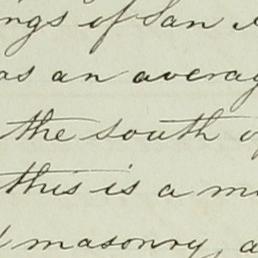 ngs of San
as an averag
the south of
this is a m
masonry, a